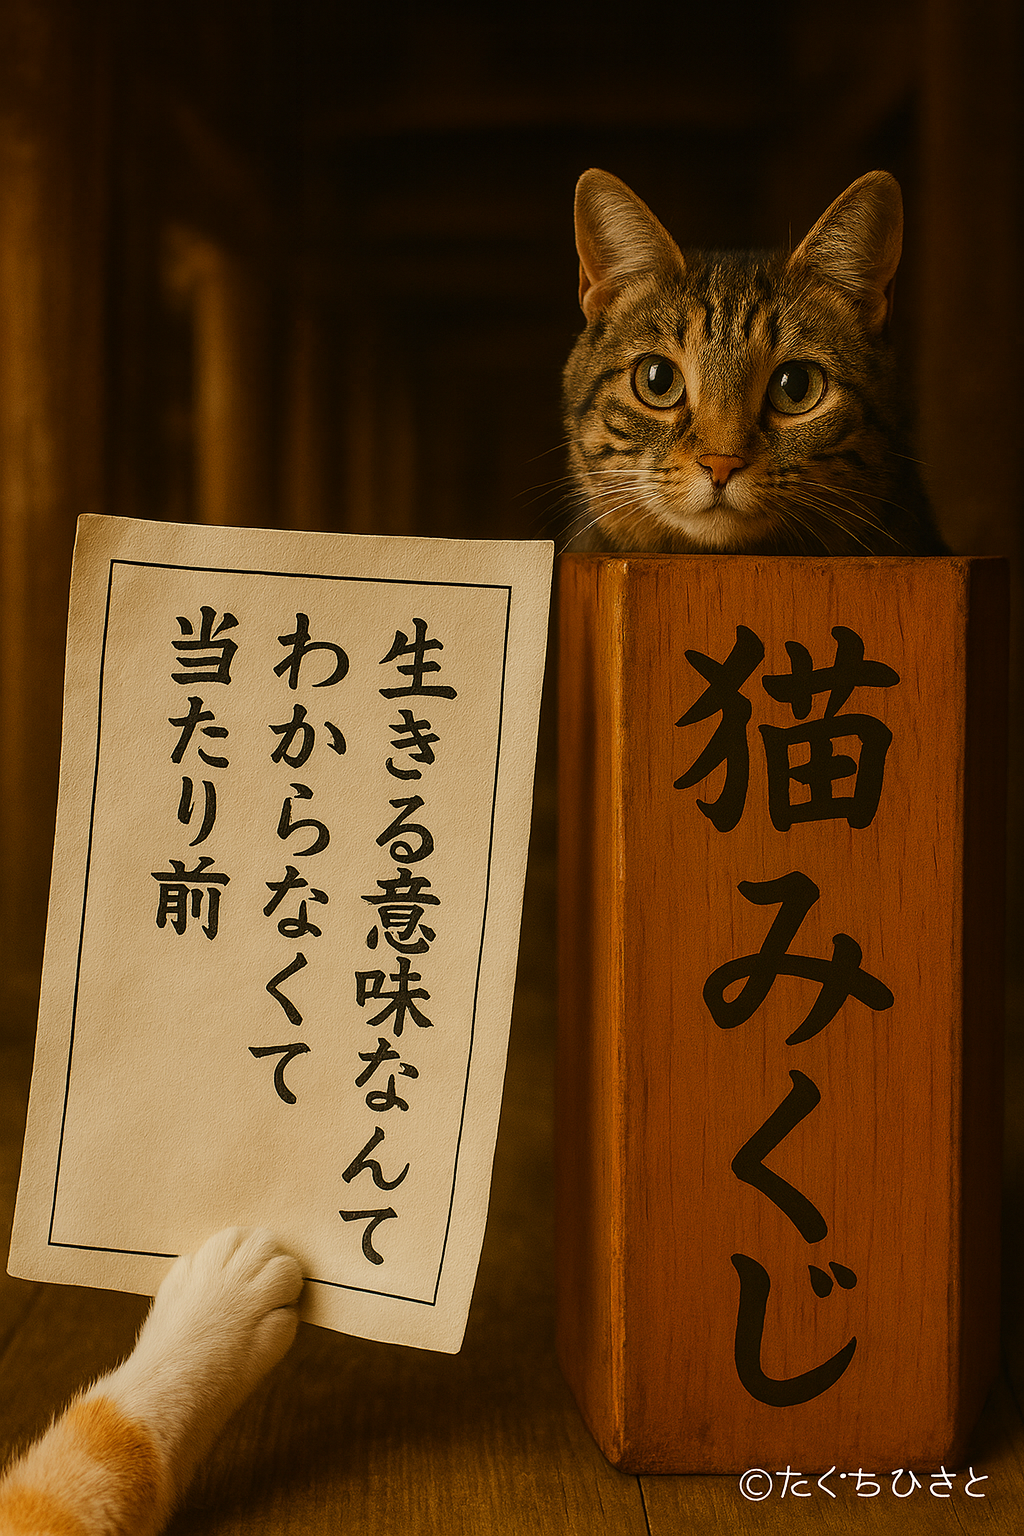 生きる意味なんて
わからなくて
当たり前
猫みくじ
©たぐちひさと